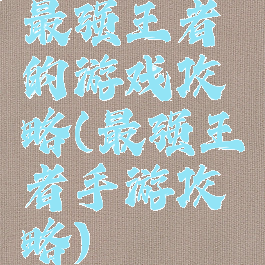 最强王者
的游戏攻
略(最强王
者手游攻
略)